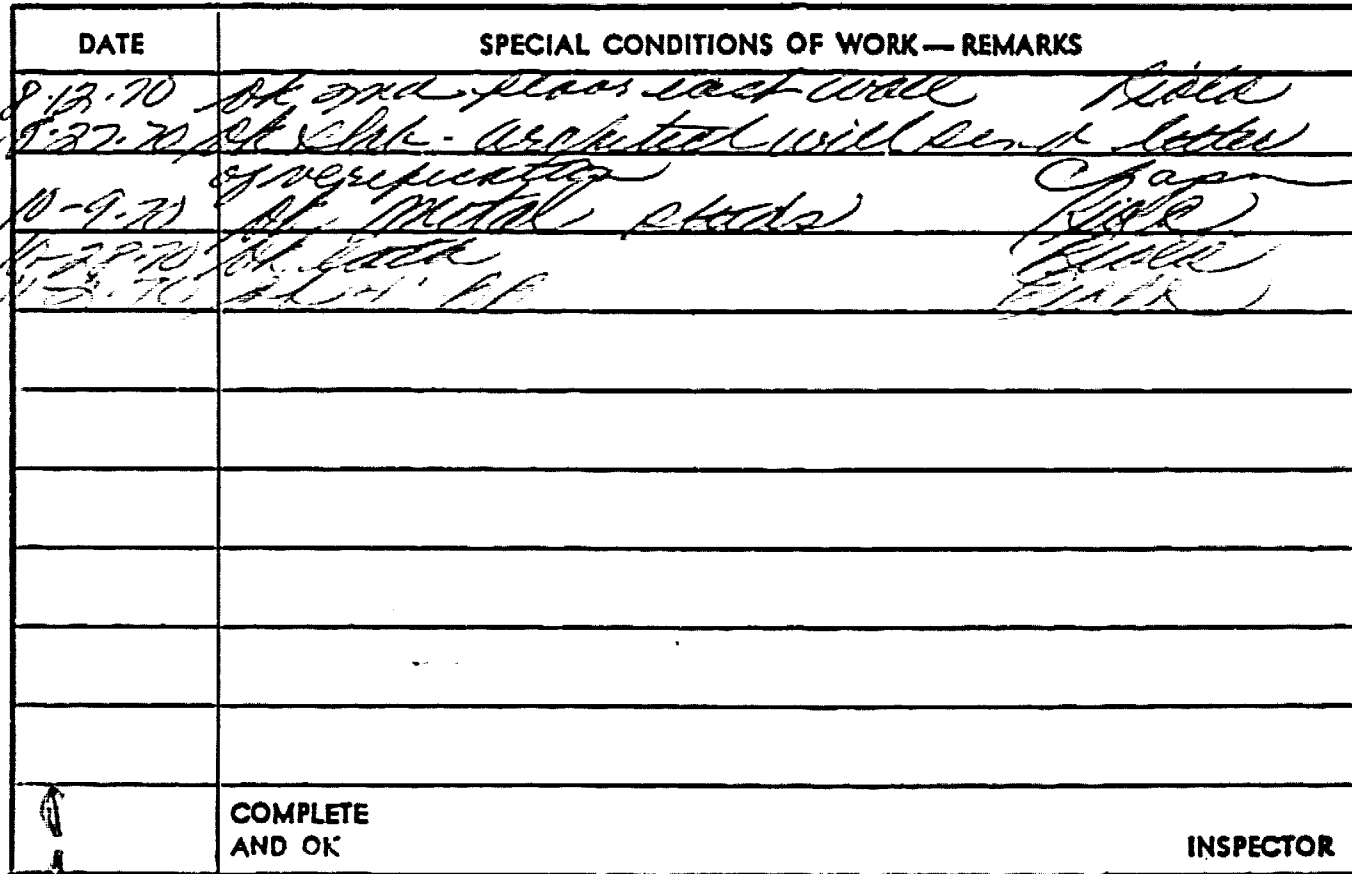 DATE SPECIAL CONDITIONS OF WORK — REMARKS
8-12-70 ok 2nd floor east wall Riola
8-27-70 ok - architect will send letter
of verification
10-9-70 ok metal studs Riola
10-28-70 ok lath Riola
COMPLETE
AND OK INSPECTOR